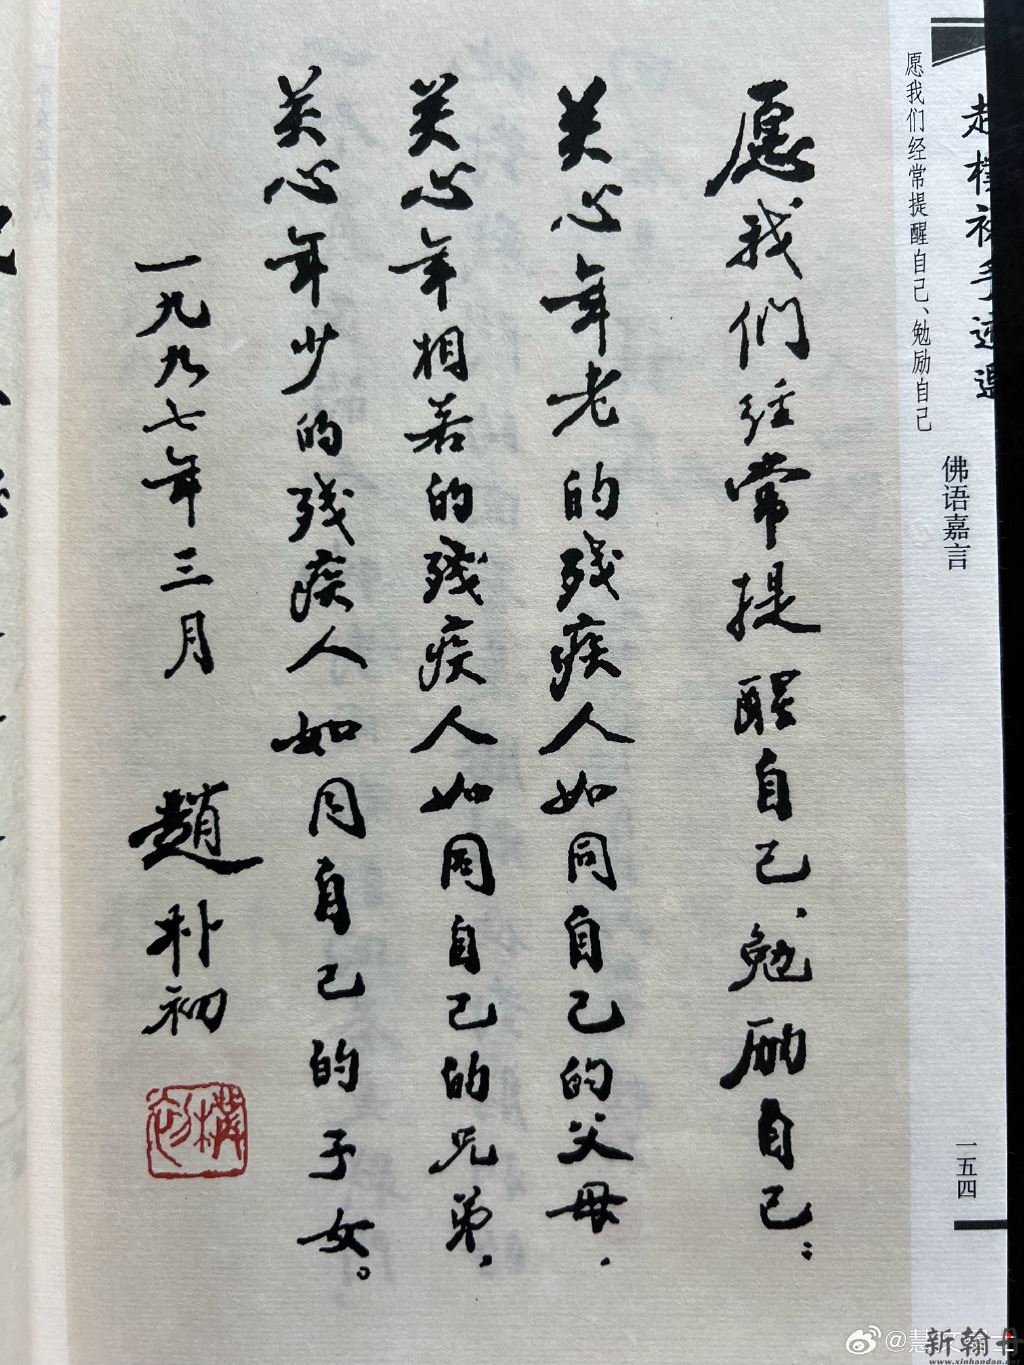 愿我们经常提醒自己、勉励自己
佛语嘉言
一五四
愿我们经常提醒自己、勉励自己：
关心年老的残疾人如同自己的父母，
关心年相若的残疾人如同自己的兄弟，
关心年少的残疾人如同自己的子女。
一九九七年三月 趙朴初
樸初
@慧
新翰丹
www.xinhandan.com